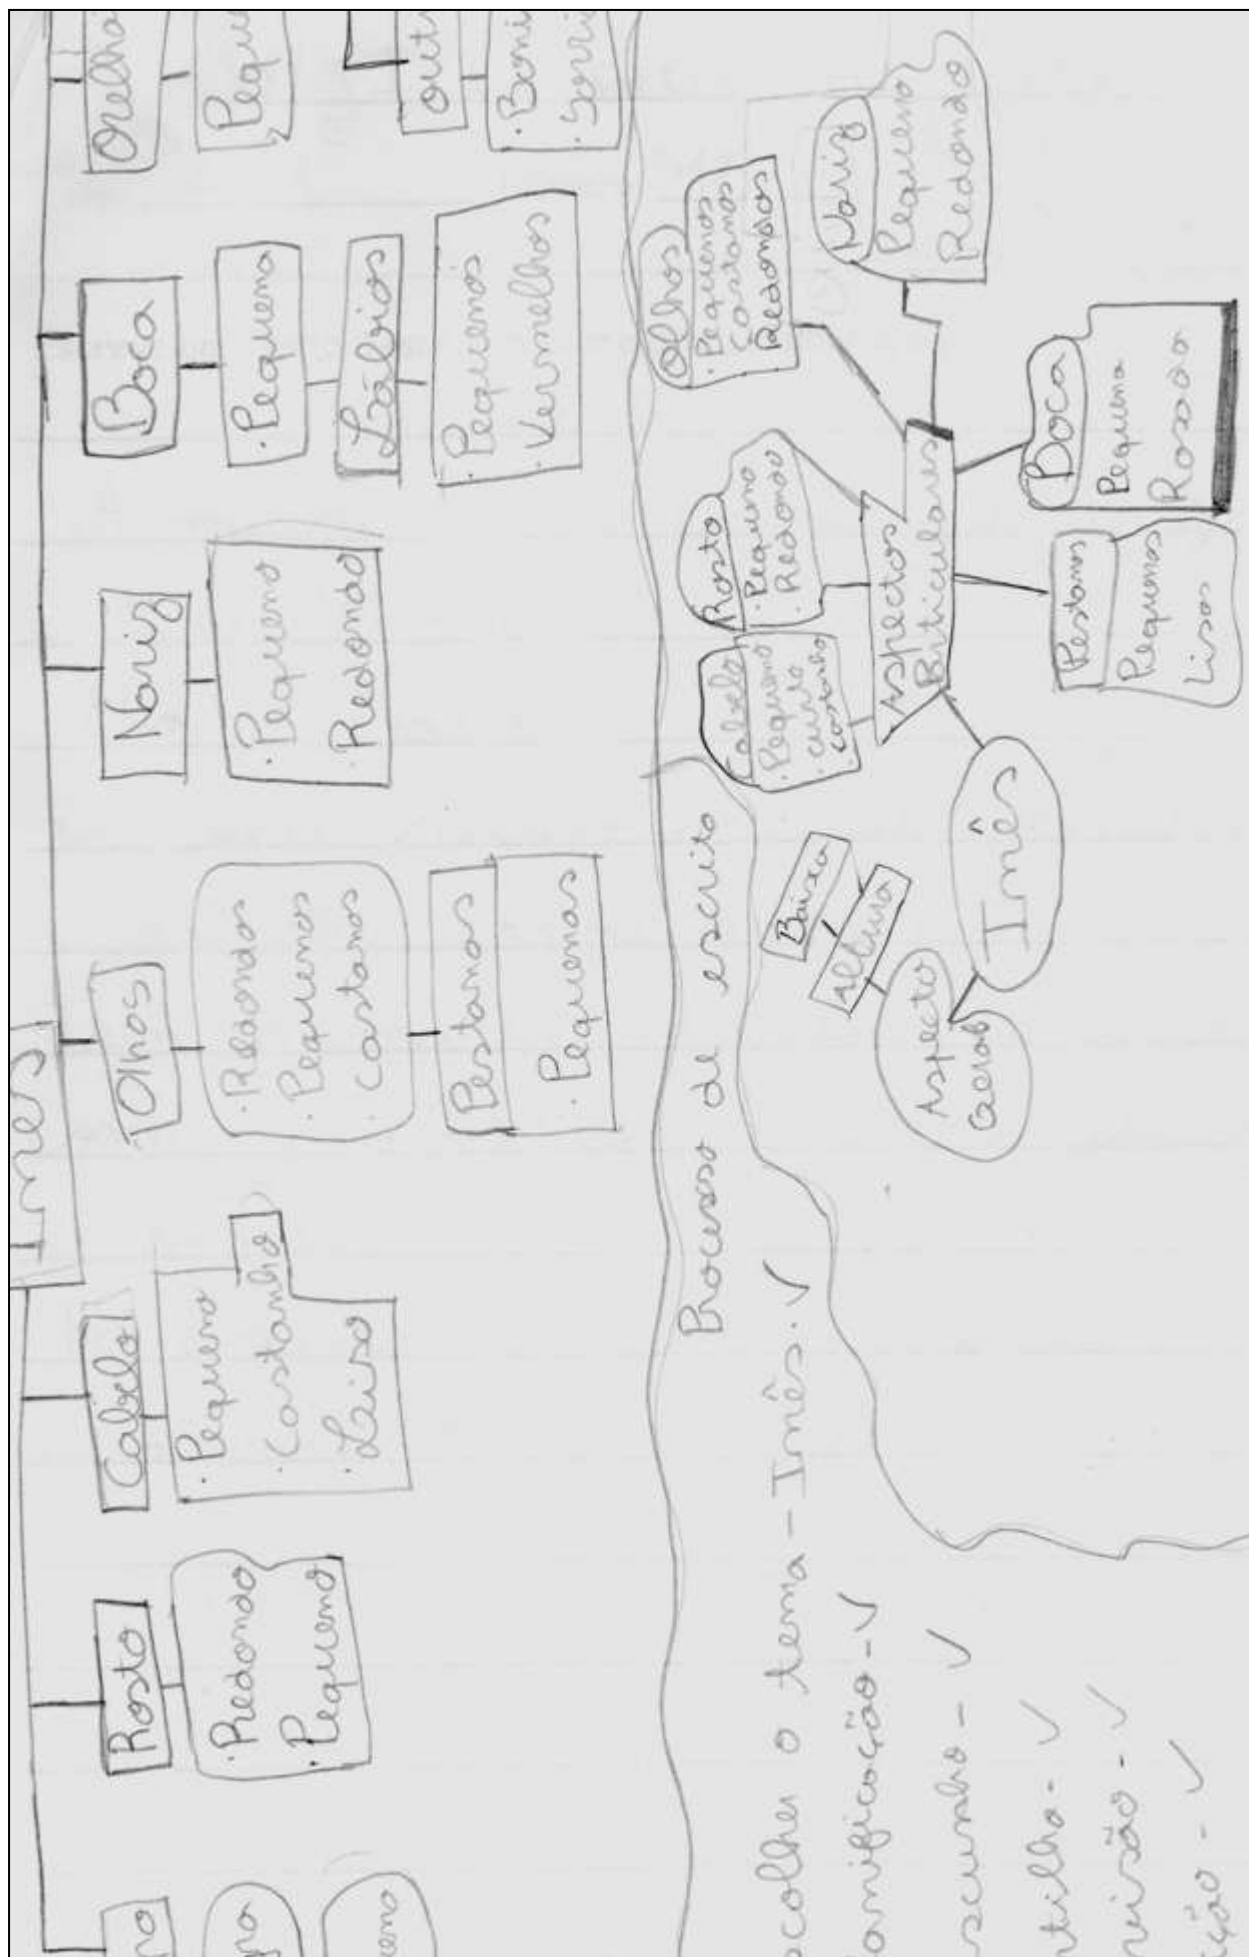 Inês
Rosto
· Redondo
· Pequeno
Cabelo
· Pequeno
· Castanho
· Laiso
Olhos
· Redondos
· Pequenos
· Castanos
Pestanas
· Pequenas
Nariz
· Pequeno
· Redondo
Boca
· Pequena
Lábios
· Pequenos
· Vermelhos
Orelha
Pequen
out
· Boni
· Sorri
Processo de escrita
scolher o tema - Inês. ✓
lanificação - ✓
ascunho - ✓
rtilha - ✓
visão - ✓
ção - ✓
Inês
Aspecto
Geral
Altura
Baixa
Aspectos
Particulares
Cabelo
· Pequeno
· curto
· castanho
Rosto
· Pequeno
· Redondo
Olhos
· Pequenos
Castanos
· Redondos
Nariz
Pequeno
Redondo
Boca
Pequena
Rosada
Pestanas
Pequenas
Lisas